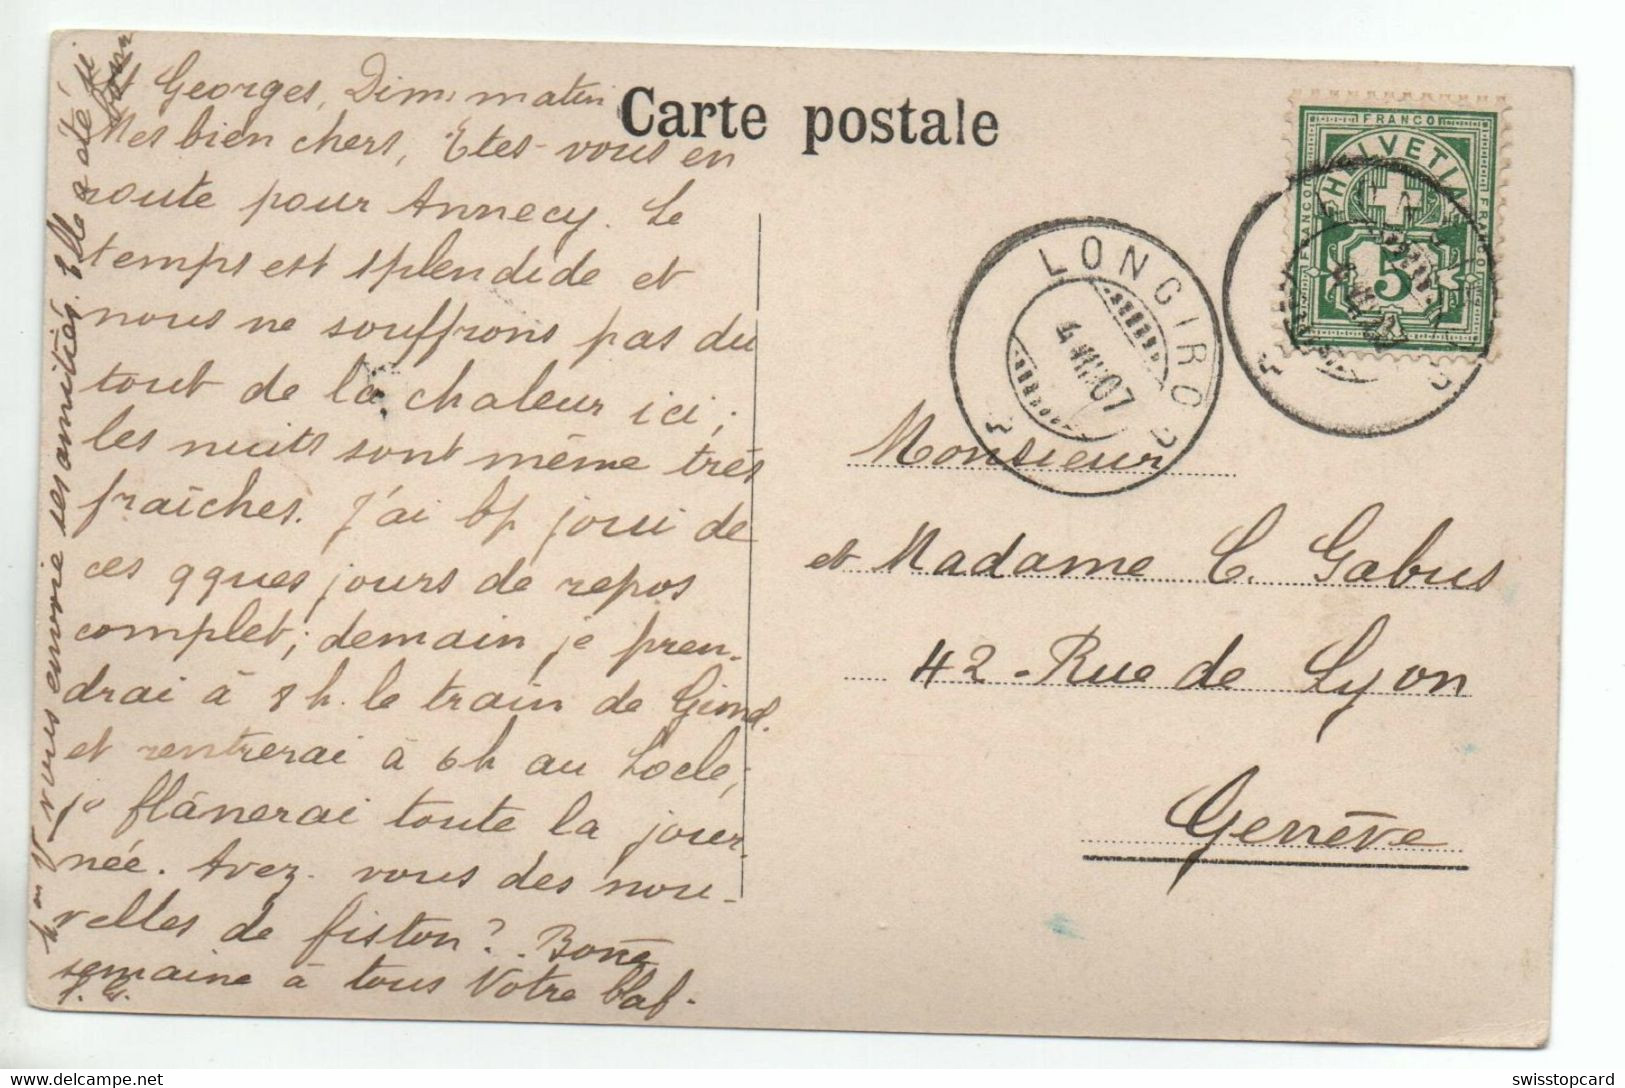 St Georges, Dim. matin
Mes bien chers, Etes-vous en
route pour Annecy. Le
temps est splendide et
nous ne souffrons pas du
tout de la chaleur ici;
les nuits sont même très
fraîches. J'ai bp joui de
ces qques jours de repos
complet; demain je pren-
drai à 8 h. le train de Gimel
et rentrerai à 6h au Locle;
je flânerai toute la jour-
née. Avez-vous des nou-
velles de fiston? Bonne
semaine à tous Votre
vous envoie ses amitiés. Elle a été si
Carte postale
FRANCO
HELVETIA
FRANCO
FRANCO
5
LONGIROD
4 VIII 07
Monsieur
et Madame C. Gabus
42 - Rue de Lyon
Genève
swisstopcard